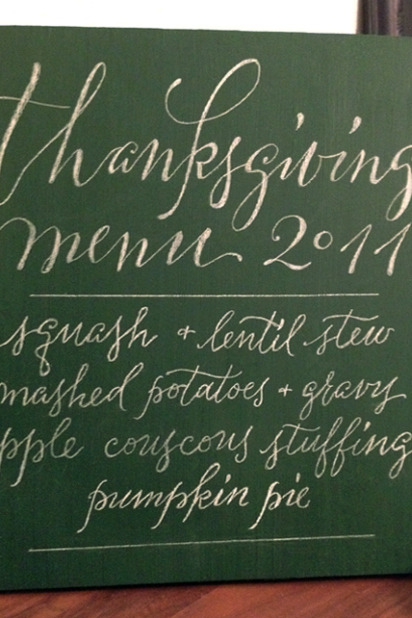 thanksgiving
menu 2011
squash + lentil stew
mashed potatoes + gravy
pple couscous stuffing
pumpkin pie